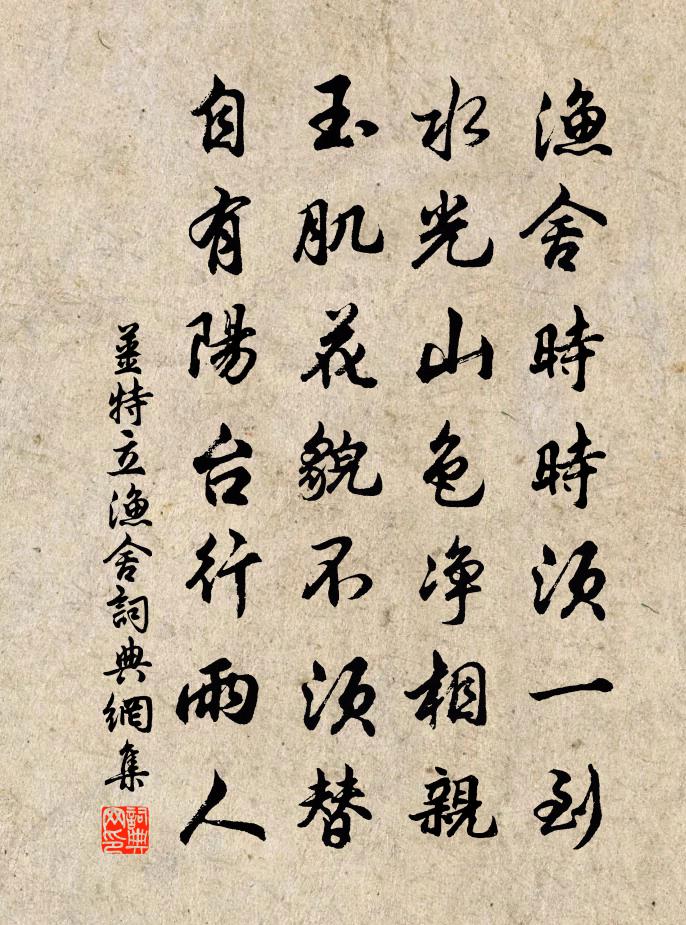 漁舍時時須一到
水光山色净相親
玉肌花貌不須替
自有陽台行雨人
姜特立漁舍詞典網集
詞典网印